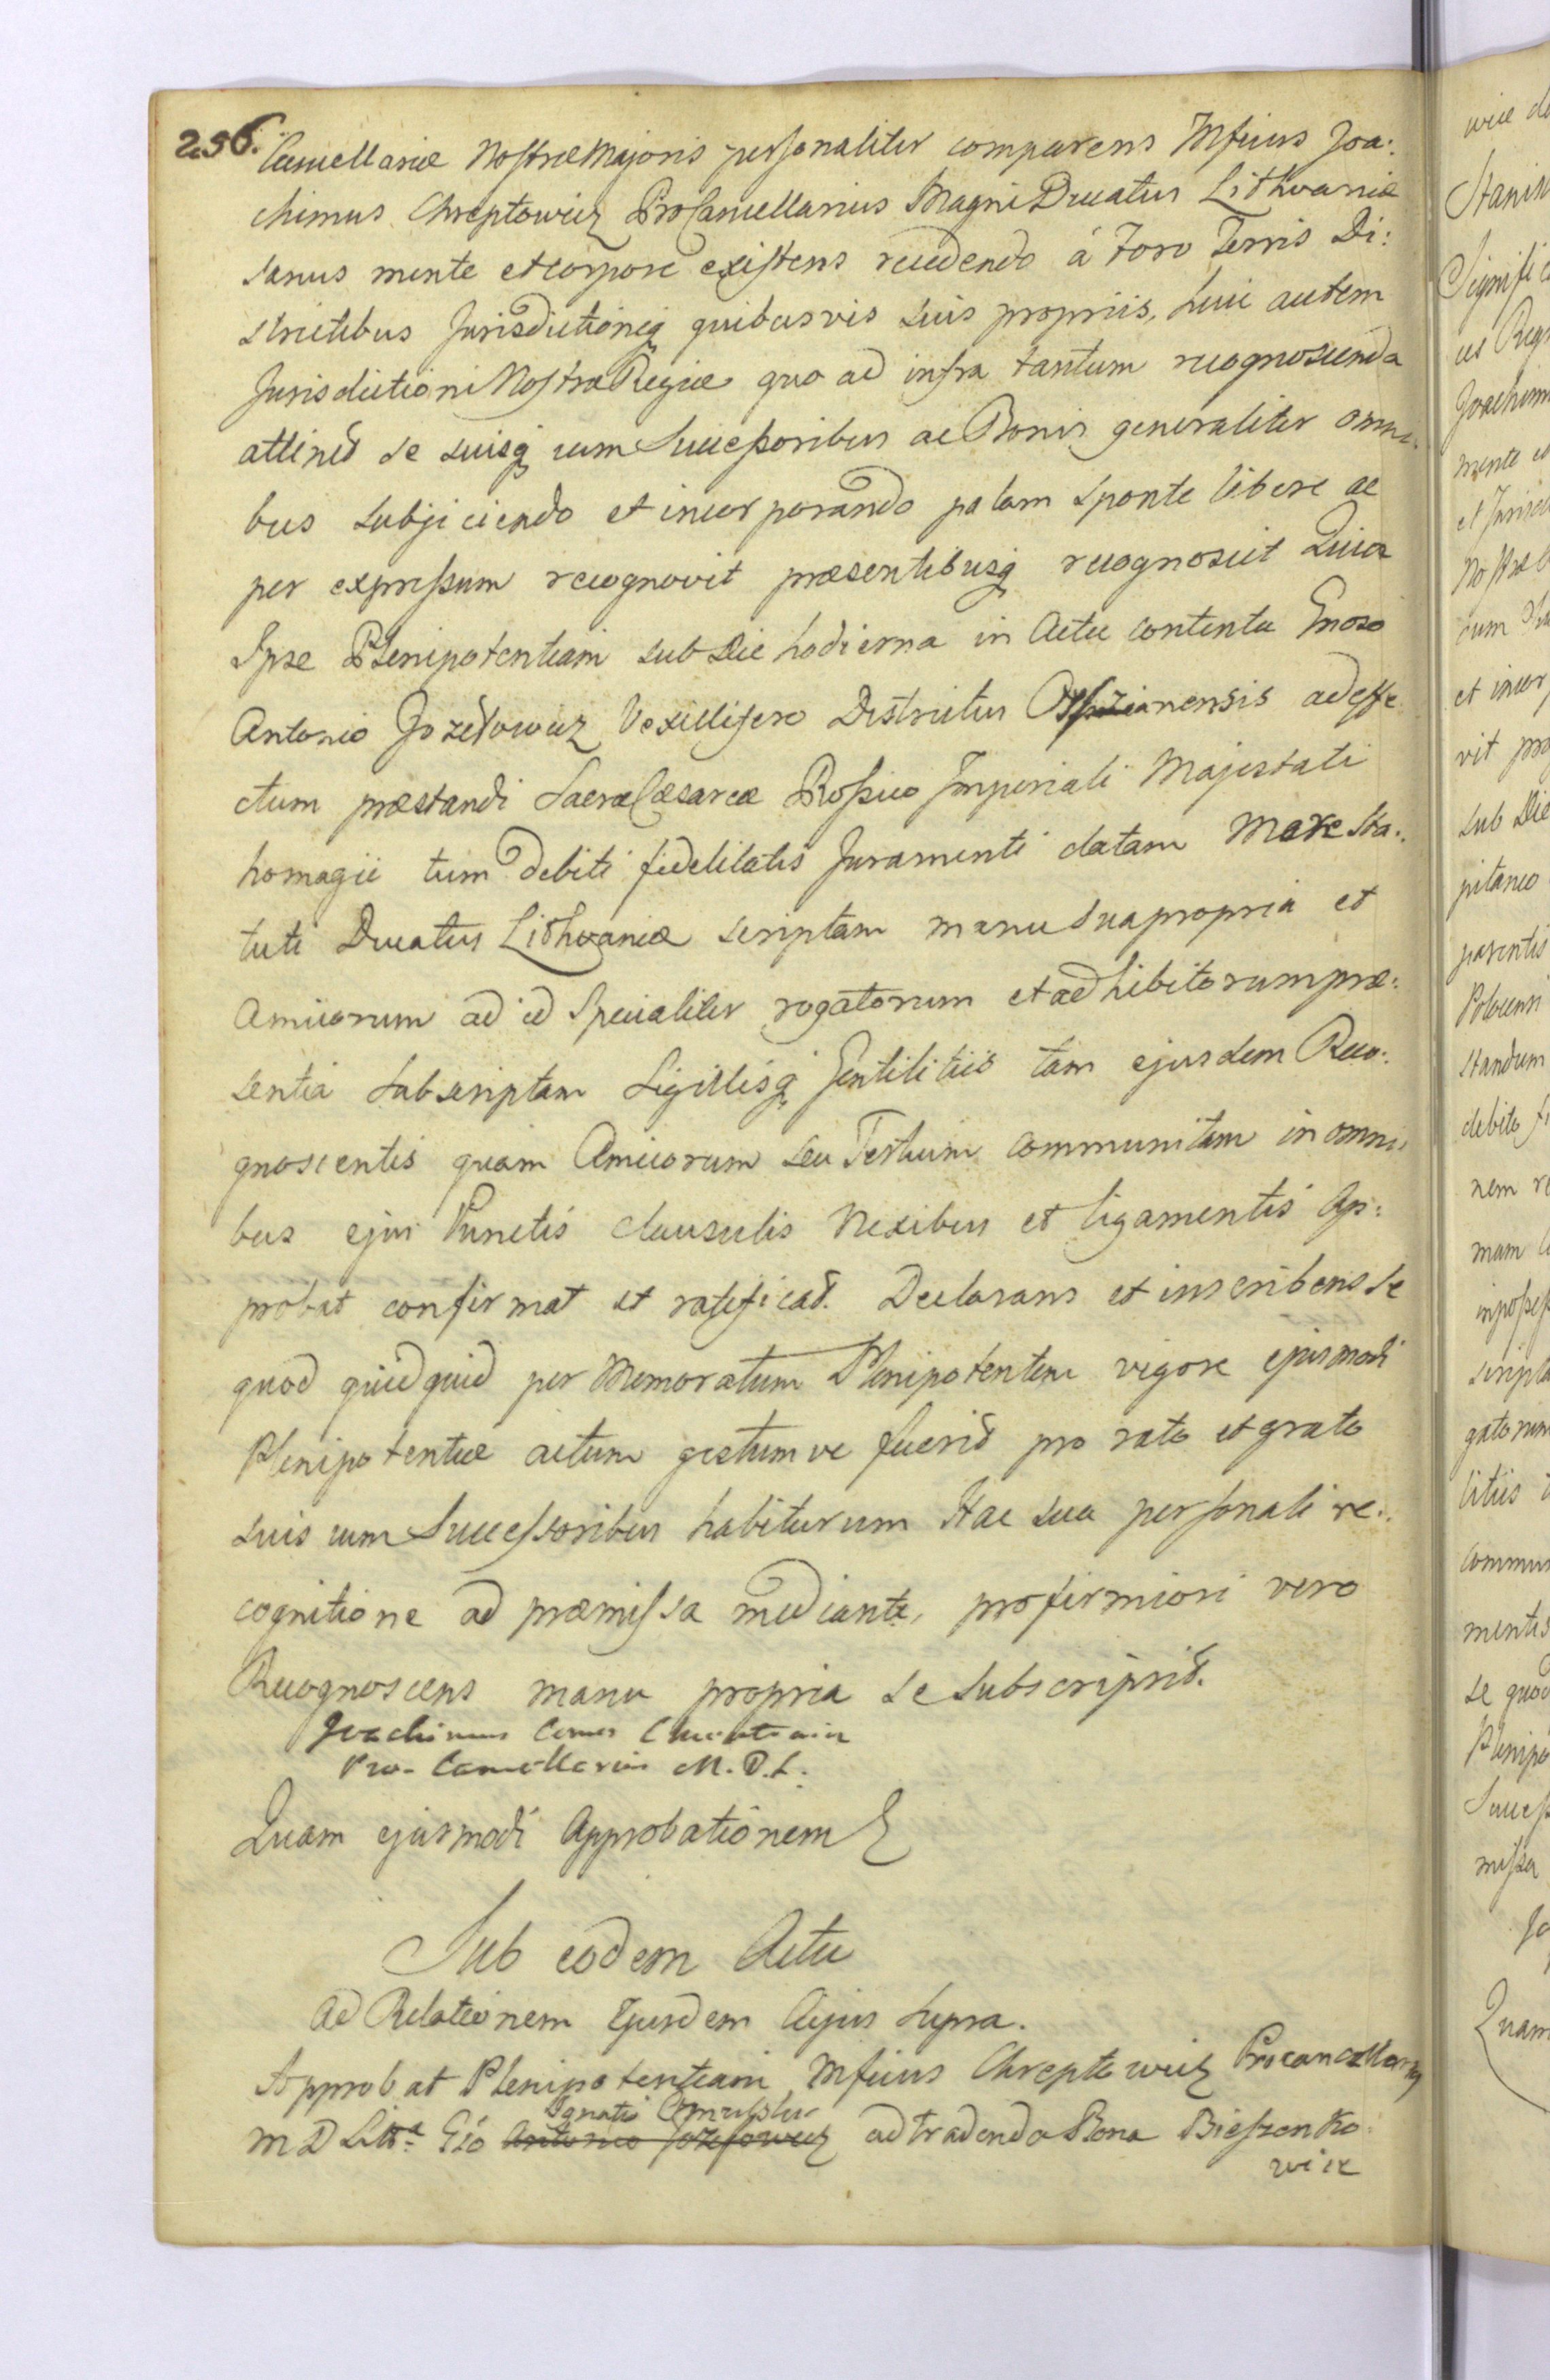 256.
Cancellariæ Nostræ Majoris personaliter comparens Mficus Joa:
chimus Chreptowicz ProCancellarius Magni Ducatus Lithvaniæ
sanus mente et corpore existens recedendo á Foro Terris Di:
strictibus Jurisdictioneq quibusvis suis propriis, huic autem
Jurisdictioni Nostræ Regiæ quo ad infra tantum recognoscenda
attinet se suisq cum Successoribus ac Bonis generaliter omni:
bus subjiciendo et incorporando palam sponte libere ac
per expressum recognovit præsentibusq recognoscit Quia
Ipse Plenipotentiam sub Die hodierna in Actu contentu Gnoso
Antonio Jozefowicz Vexillifero Districtus Oszmianensis ad effe
ctum præstandi Sacræ Cæsareæ Rossico Imperiali Majestati
homagii tum debiti fidelitatis Juramenti datam More Sta:
tuti Ducatus Lithvaniæ scriptam manu sua propria et
Amicorum ad id Specialiter rogatorum et adhibitorum præ:
sentiá subscriptam Sigillisq Gentilitiis tam ejusdem Reco:
gnoscentis quam Amicorum seu Testium communitam in omni:
bus ejus Punctis Clausulis Nexibus et ligamentis Ap:
probat confirmat et ratificat. Declarans et inscribens se
quod quidquid per Memoratum Plenipotentem vigore ejusmodi
Plenipotentiæ actum gestumve fuerit pro rato et grato
suis cum Successoribus habiturum Hac sua personali re:
cognitione ad præmissa mediante, pro firmiori vero
Recognoscens manu propria se subscripsit.
Joachimus Comes
Pro-Cancellarius M.D.L.
Quam ejusmodi Approbationem
Sub eodem Actu
Ad Relationem Ejusdem Cujus supra.
Approbat Plenipotentiam Mficus Chreptowicz Procancellarius
Ignatio
M D Litt Gso Antonio Jozefowicz ad tradenda Bona Bieszenko
wice